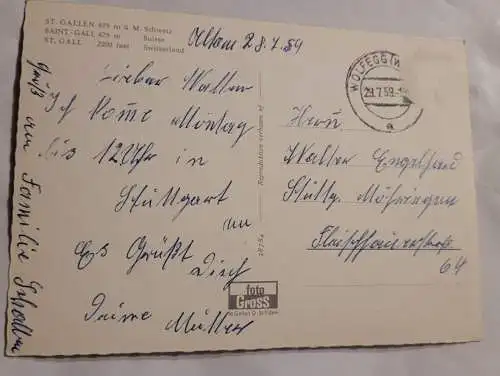 ST. GALLEN 679 m ü. M. Schweiz
SAINT-GALL 679 m Suisse
ST. GALL 2200 feet Switzerland
28.7.59
Lieber Walter
Ich kome Montag
bis 12 Uhr in
Stuttgart
an
Es Grüßt Dich
Deine Mutter
Gruß an Familie
WOLFEGG
29.7.59
a
Herrn
Walter Engelhard
Stuttg. Möhringen
64
Reproduktion verboten
foto
Gross
St. Gallen